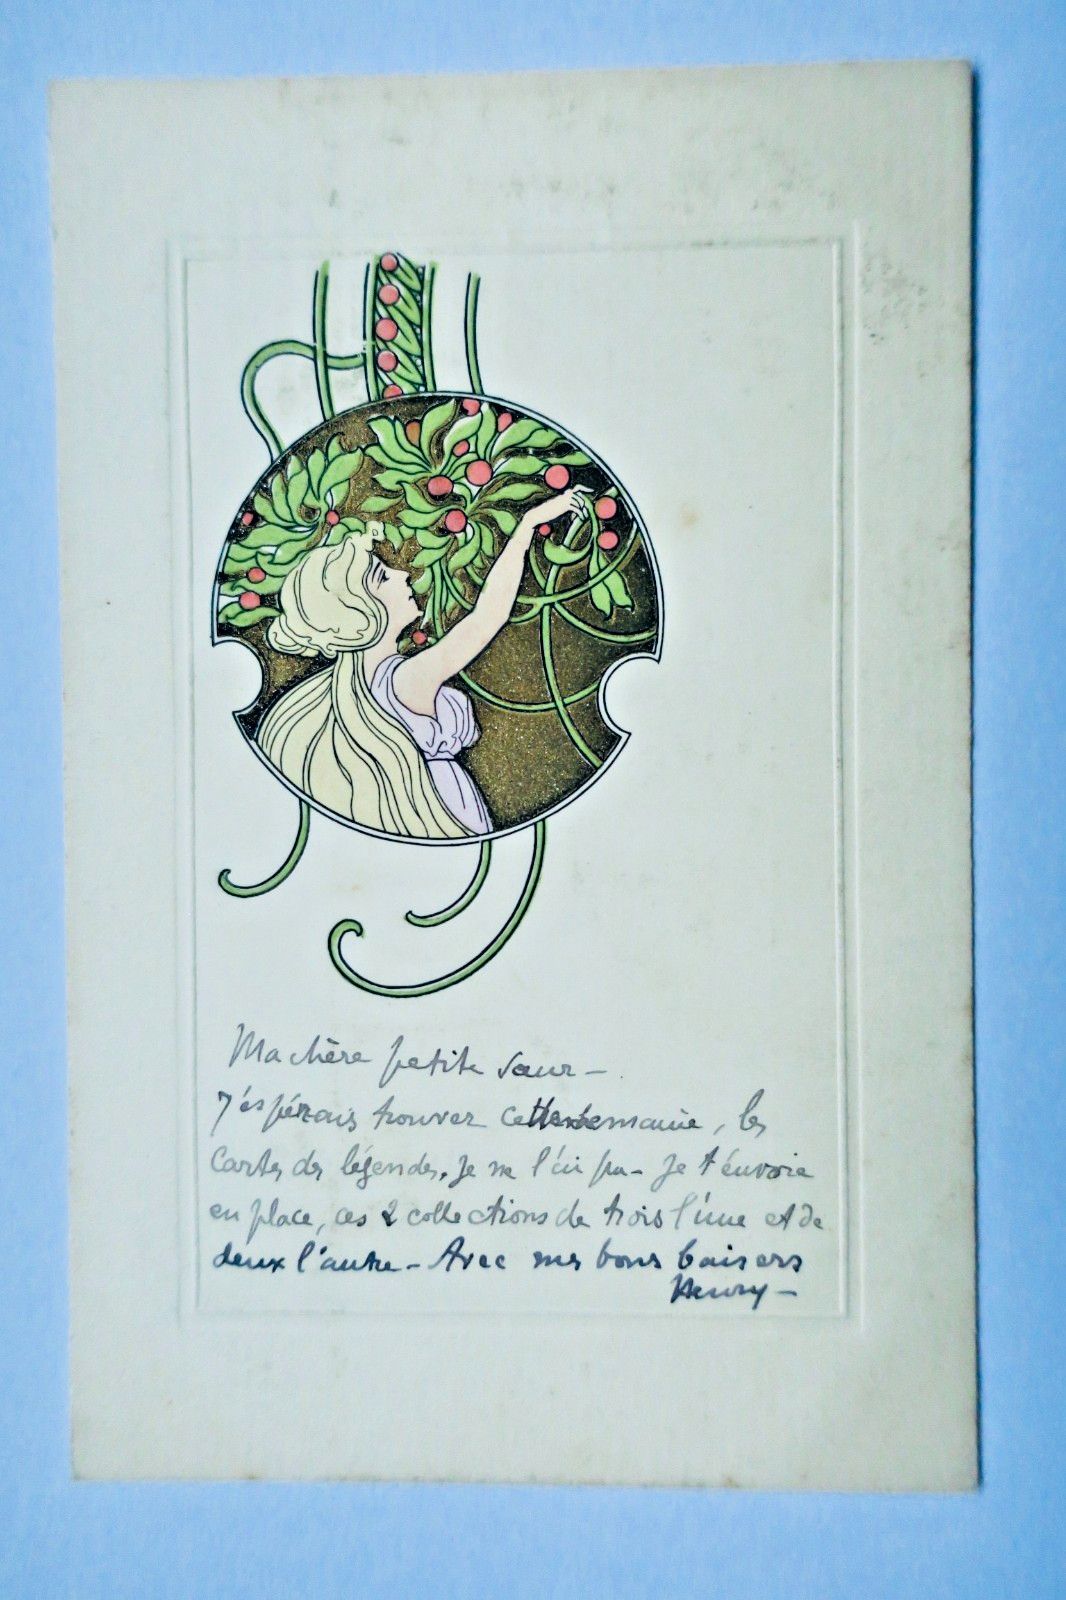 Ma chère petite sœur –
J'espérais trouver cette semaine, les
Cartes des légendes. Je ne l'ai pu – Je t'envoie
en place, ces 2 collections de trois l'une et de
deux l'autre – Avec mes bons baisers
Henry –